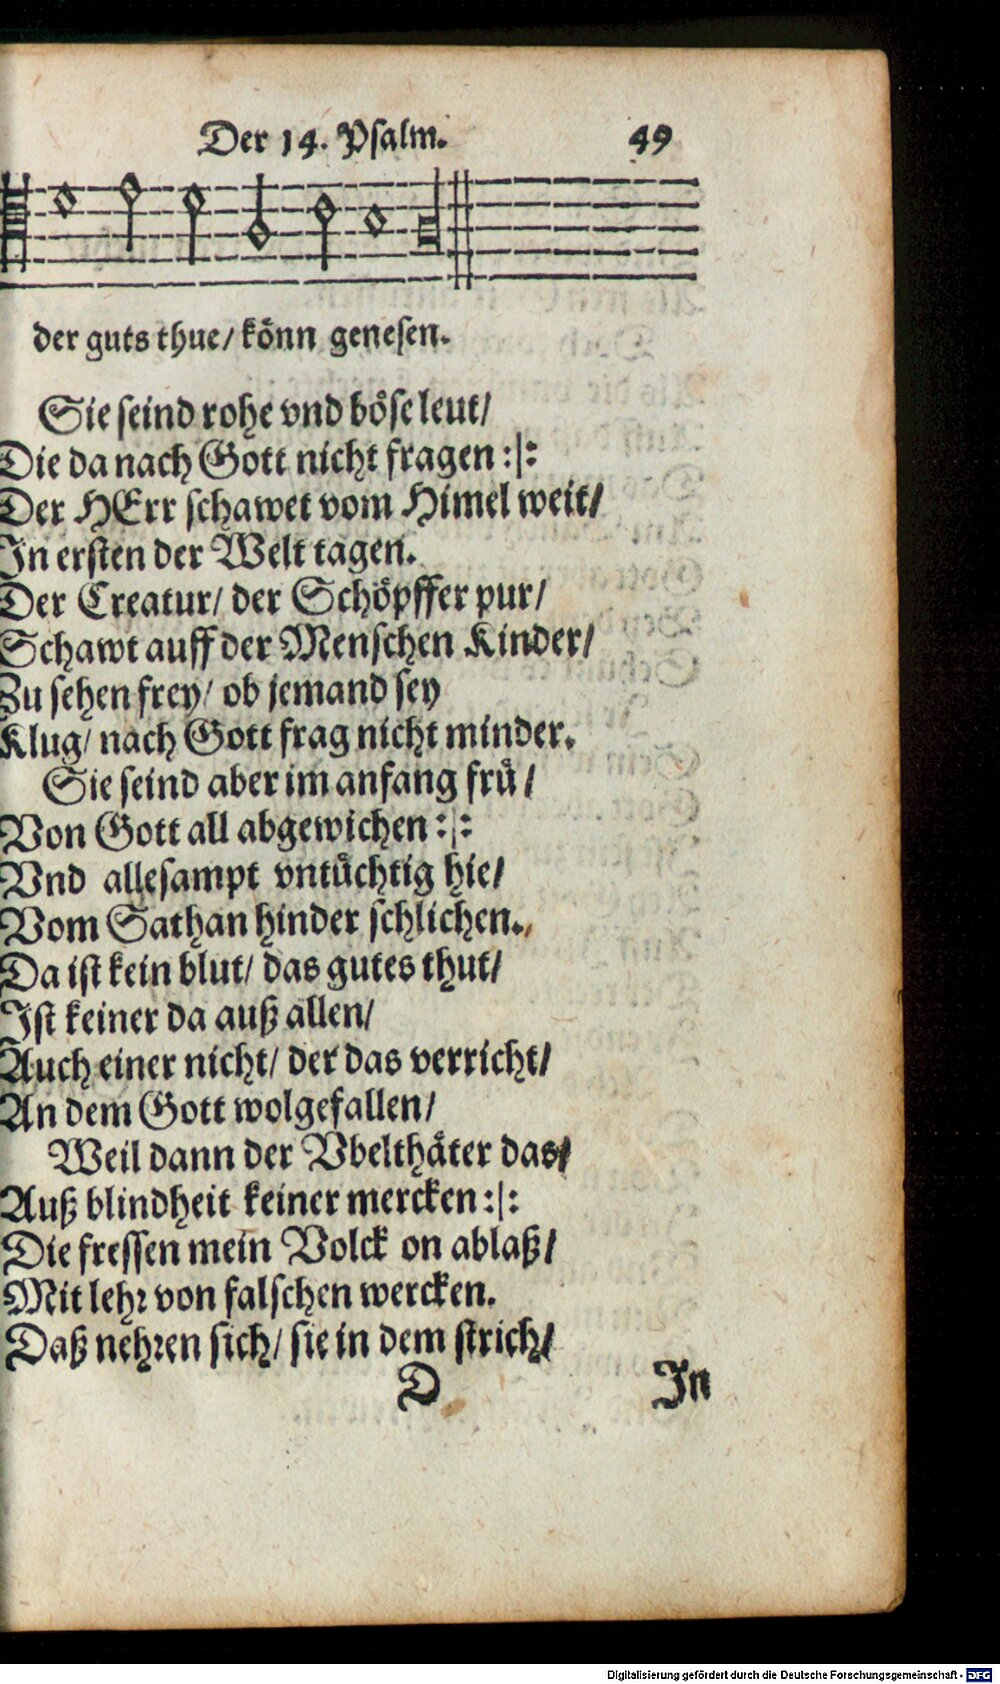 Der 14. Psalm. 49
der guts thue/ könn genesen.
Sie seind rohe vnd böse leut/
Die da nach Gott nicht fragen :|:
Der HErr schawet vom Himel weit/
In ersten der Welt tagen.
Der Creatur/ der Schöpffer pur/
Schawt auff der Menschen Kinder/
Zu sehen frey/ ob jemand sey
Klug/ nach Gott frag nicht minder.
Sie seind aber im anfang frü/
Von Gott all abgewichen :|:
Vnd allesampt vntüchtig hie/
Vom Sathan hinder schlichen.
Da ist kein blut/ das gutes thut/
Ist keiner da auß allen/
Auch einer nicht/ der das verricht/
An dem Gott wolgefallen/
Weil dann der Vbelthäter das/
Auß blindheit keiner mercken :|:
Die fressen mein Volck on ablaß/
Mit lehr von falschen wercken.
Daß nehren sich/ sie in dem strich/
D In
Digitalisierung gefördert durch die Deutsche Forschungsgemeinschaft - DFG